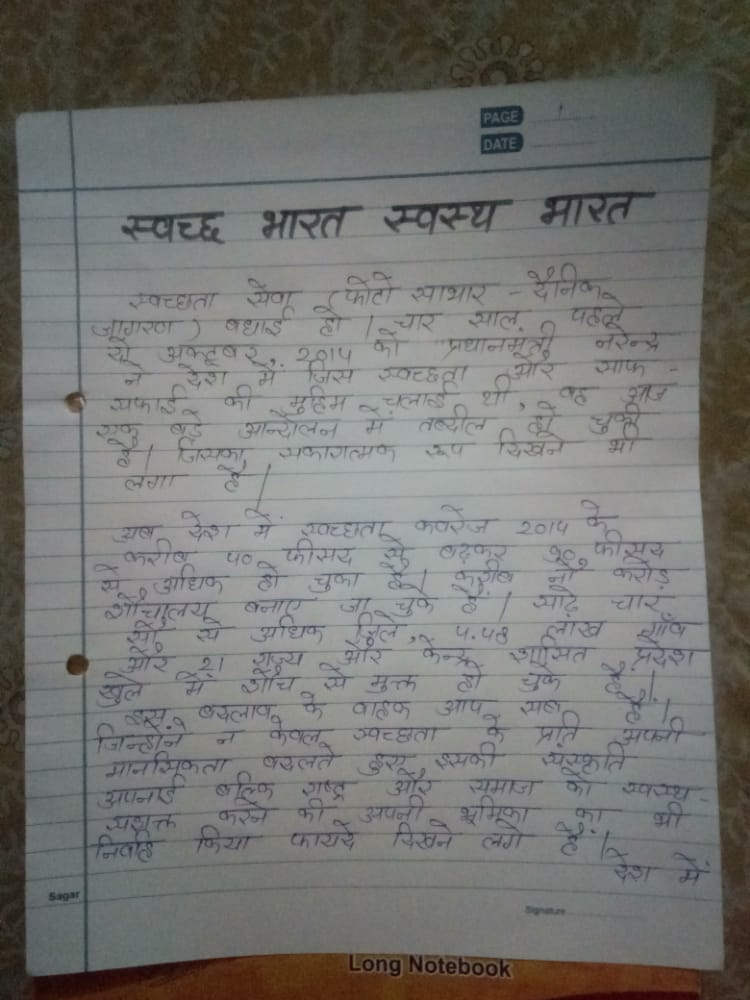 PAGE 1
DATE
स्वच्छ भारत स्वस्थ भारत
स्वच्छता सेवा (फोटो साभार - दैनिक
जागरण) बधाई हो। चार साल पहले
दो अक्टूबर, 2014 को प्रधानमंत्री नरेन्द्र
ने देश में जिस स्वच्छता और साफ -
सफाई की मुहिम चलाई थी, वह आज
एक बड़े आन्दोलन में तब्दील हो चुकी
है। जिसका सकारात्मक रूप दिखने भी
लगा है।
अब देश में स्वच्छता कवरेज 2014 के
करीब ४० फीसद से बढ़कर ९०, फीसद
से अधिक हो चुका है। करीब नौ करोड़
शौचालय बनाए जा चुके हैं। साढ़े चार
सौ से अधिक जिले, लाख गाँव
और 21 राज्य और केन्द्र शासित प्रदेश
खुले में शौच से मुक्त हो चुके है।
इस बदलाव के वाहक आप सब है।
जिन्होंने न केवल स्वच्छता के प्रति अपनी
मानसिकता बदलते हुए इसकी संस्कृति
अपनाई बल्कि राष्ट्र और समाज को स्वस्थ -
सशक्त करने की अपनी भूमिका का भी
निर्वाह किया फायदे दिखने लगे हैं।
देश में
Sagar
Signature
Long Notebook